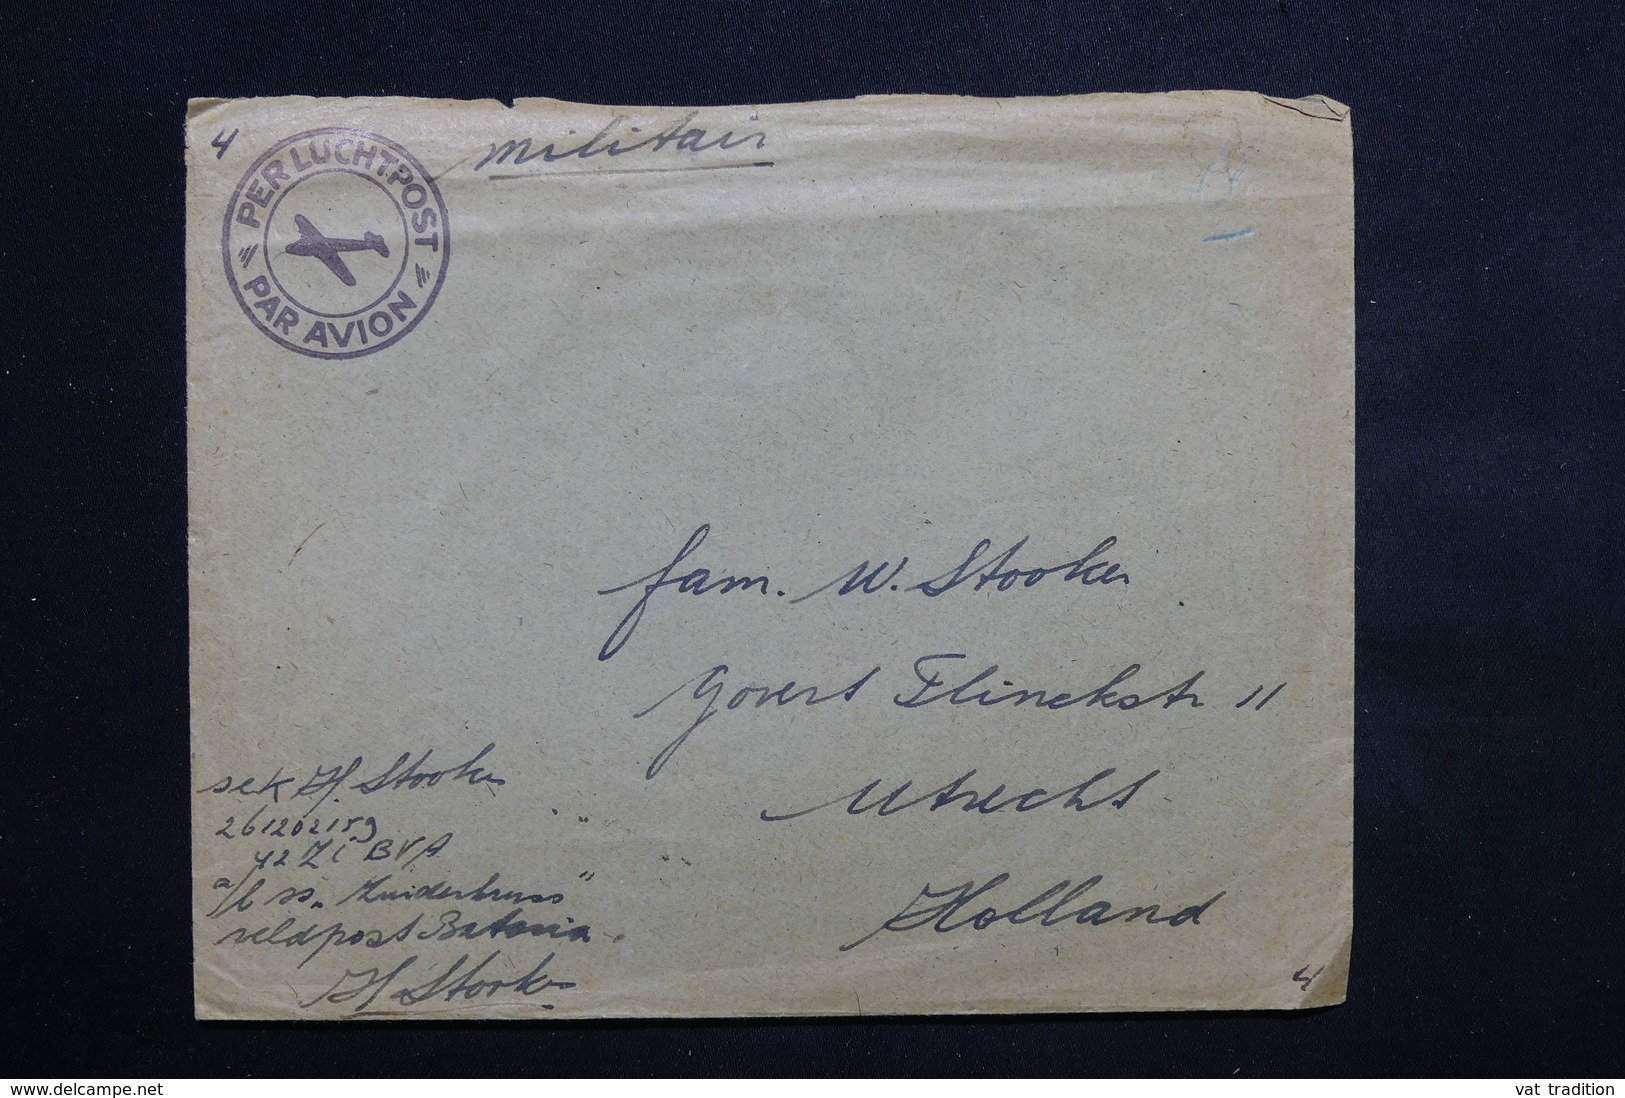 4
PER LUCHTPOST
PAR AVION
militair
fam. W. Stooker
Govert Flinckstr 11
Utrecht
Holland
H. Stooker
261202159
42 Z i BVA
a/b ss "Zuiderkruis"
veldpost Batavia
H Stooker
4
delcampe.net
vat tradition